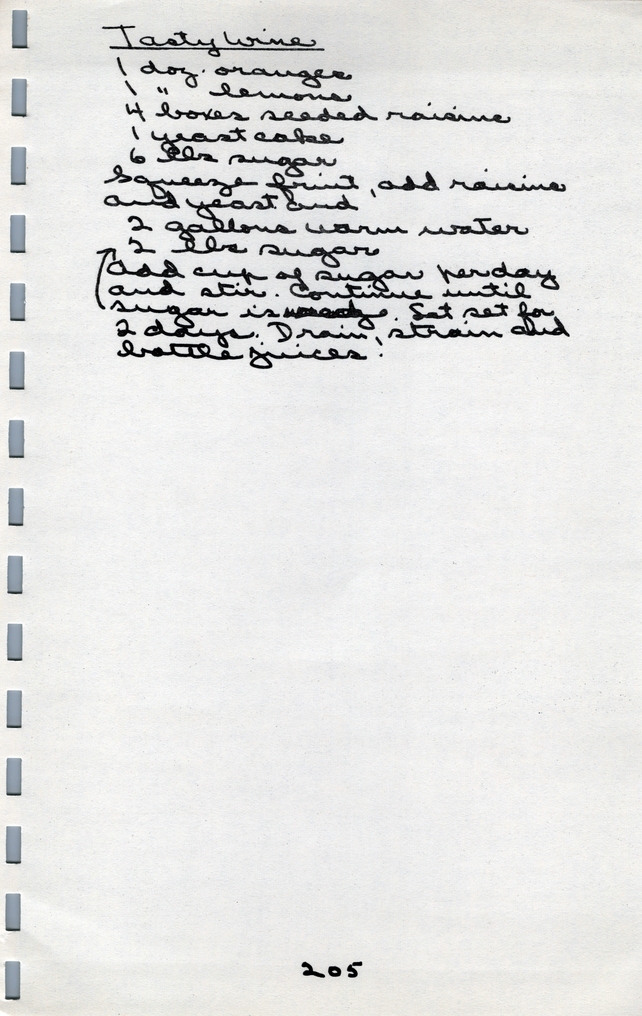 Tasty Wine
1 doz. oranges
1 " lemons
4 boxes seeded raisins
1 yeast cake
6 lbs sugar
Squeeze fruit, add raisins
and yeast and
2 gallons warm water
2 lbs sugar
Add cup of sugar per day
and stir. Continue until
sugar is Set set for
2 days. Drain, strain and
bottle juices.
205